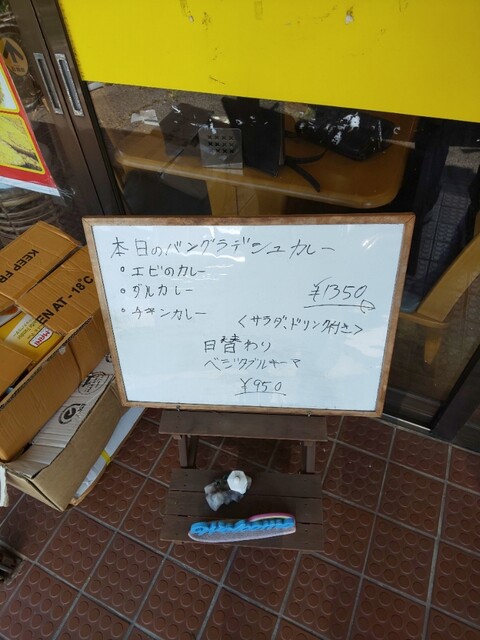 本日のバングラデシュカレー
・エビのカレー
・ダルカレー
¥1350
・チキンカレー
<サラダ、ドリンク付き>
日替わり
ベジタブルキーマ
¥950
KEEP FR
EN AT -18°C